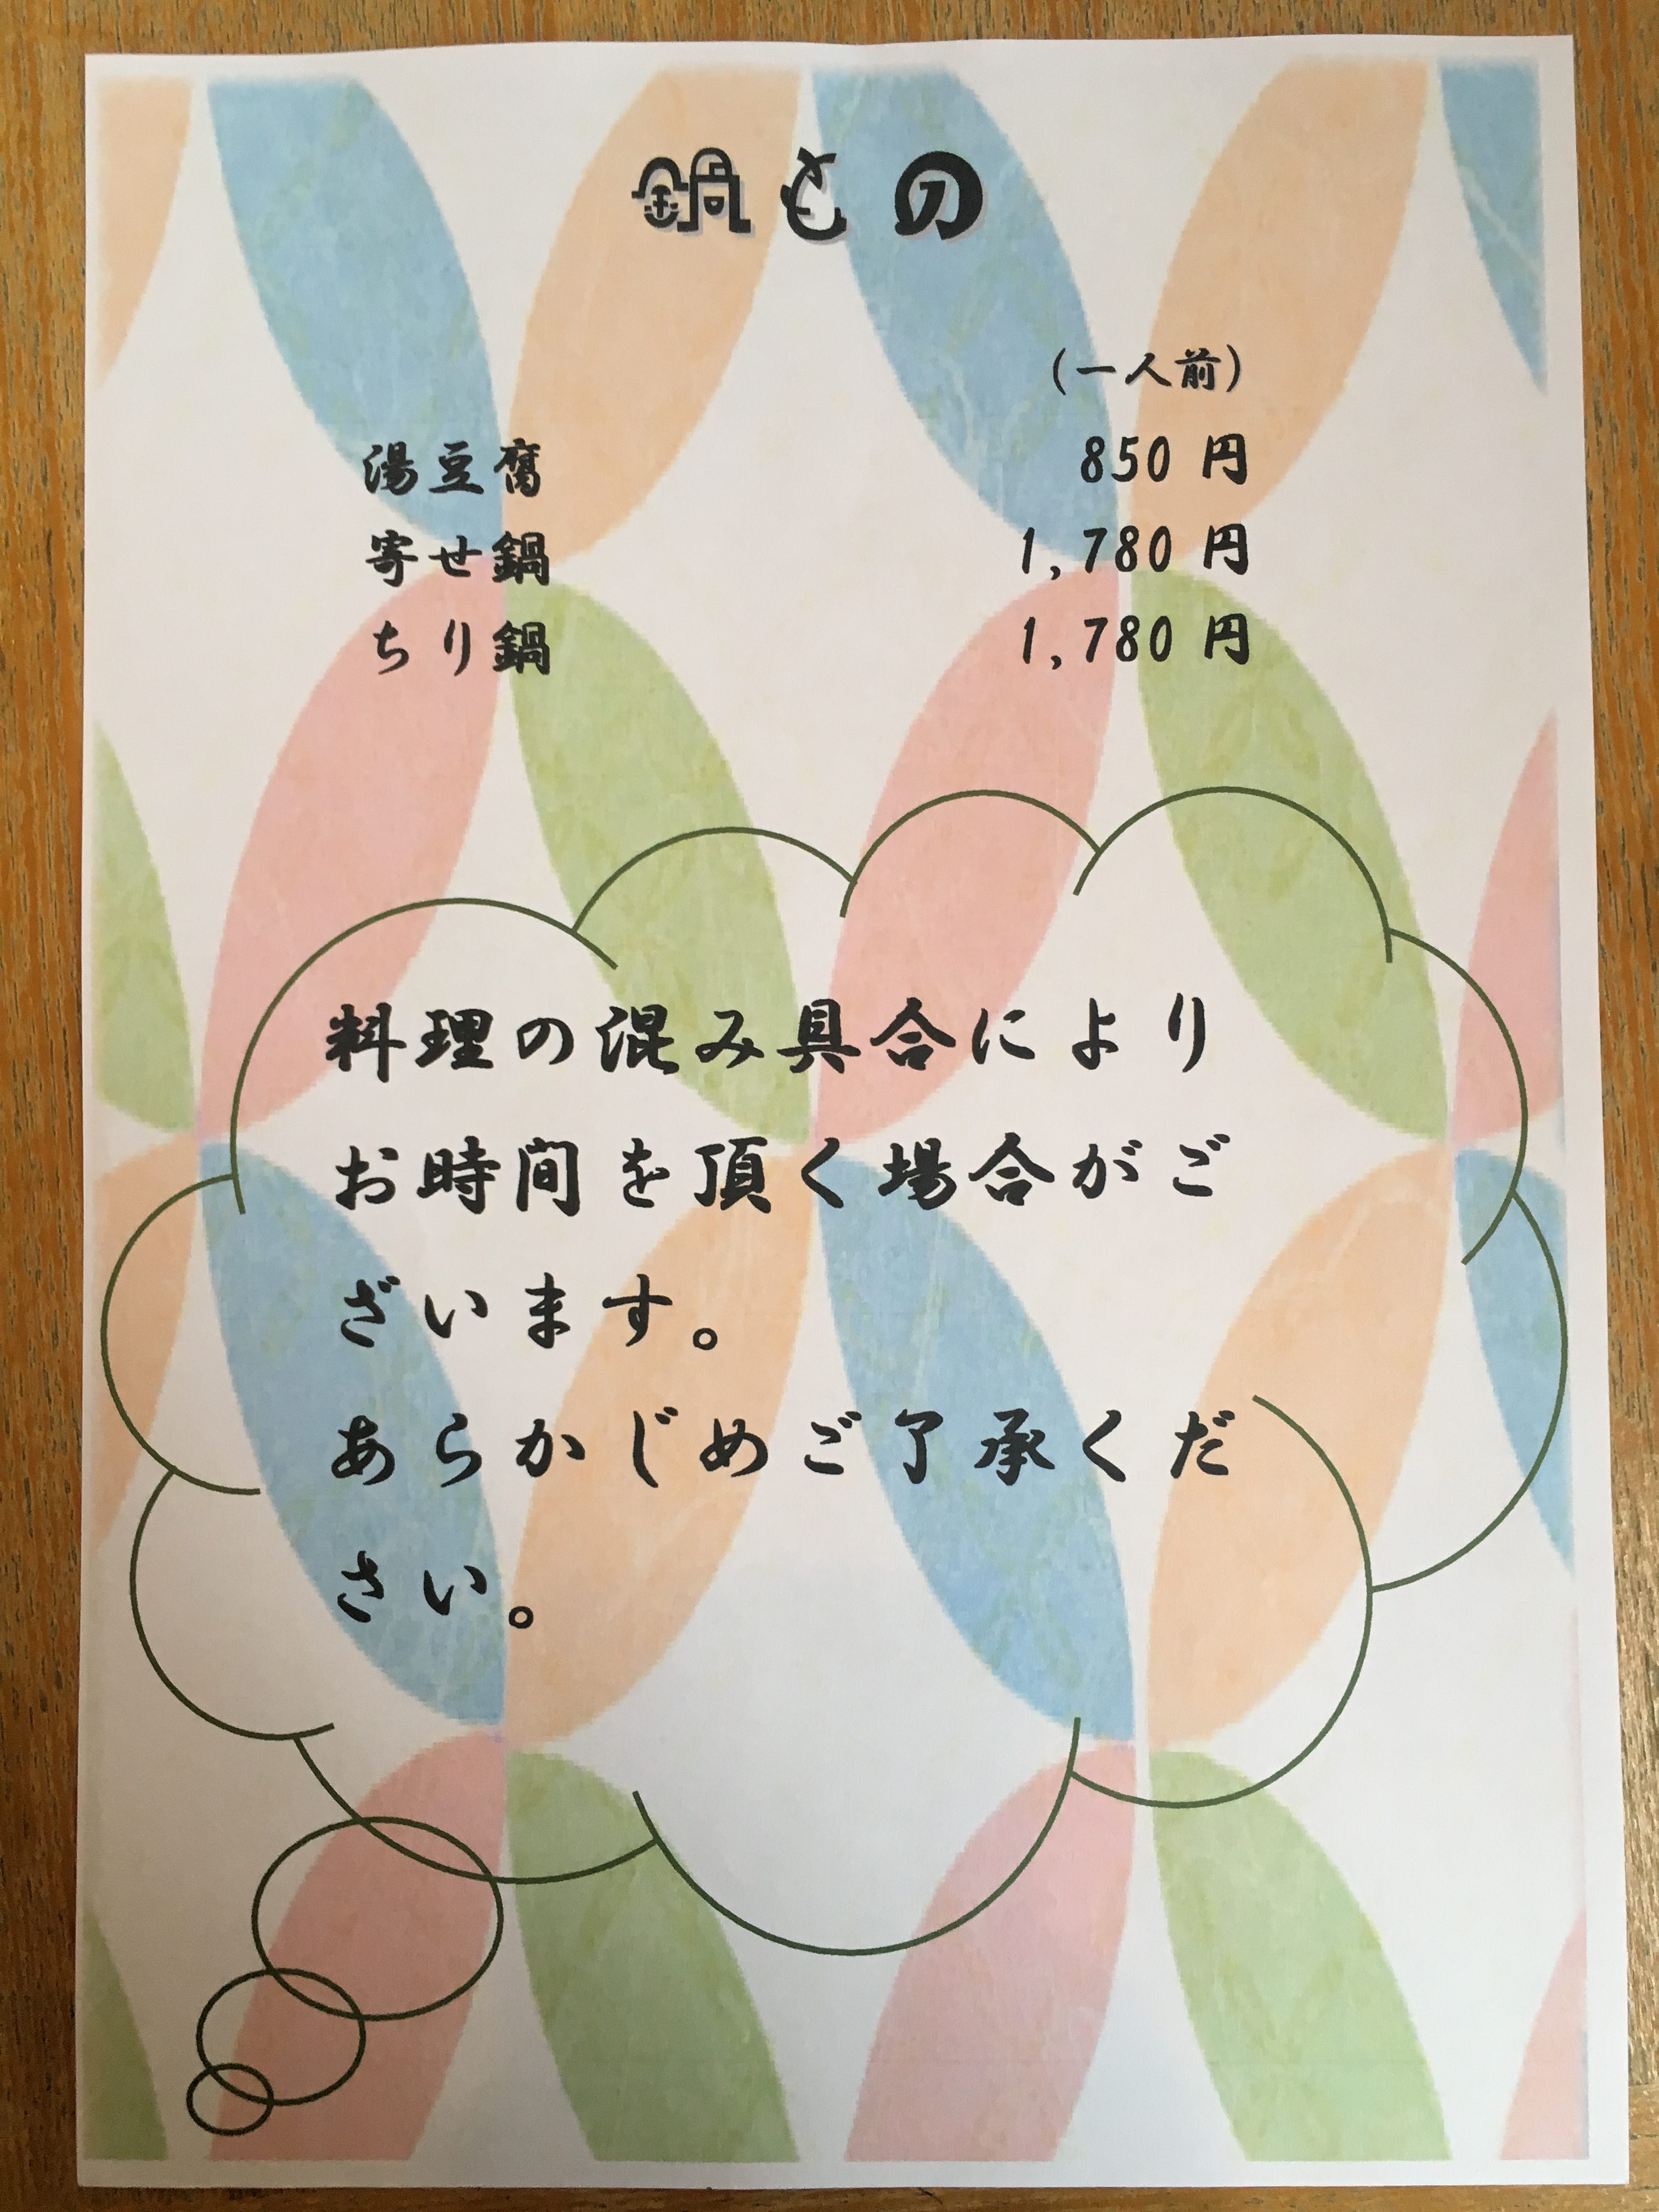 鍋もの
（一人前）
湯豆腐 850 円
寄せ鍋 1,780 円
ちり鍋 1,780 円
料理の混み具合により
お時間を頂く場合がご
ざいます。
あらかじめご了承くだ
さい。